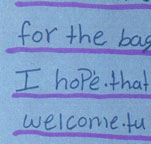 for the bag
I hope.that
welcome.tu